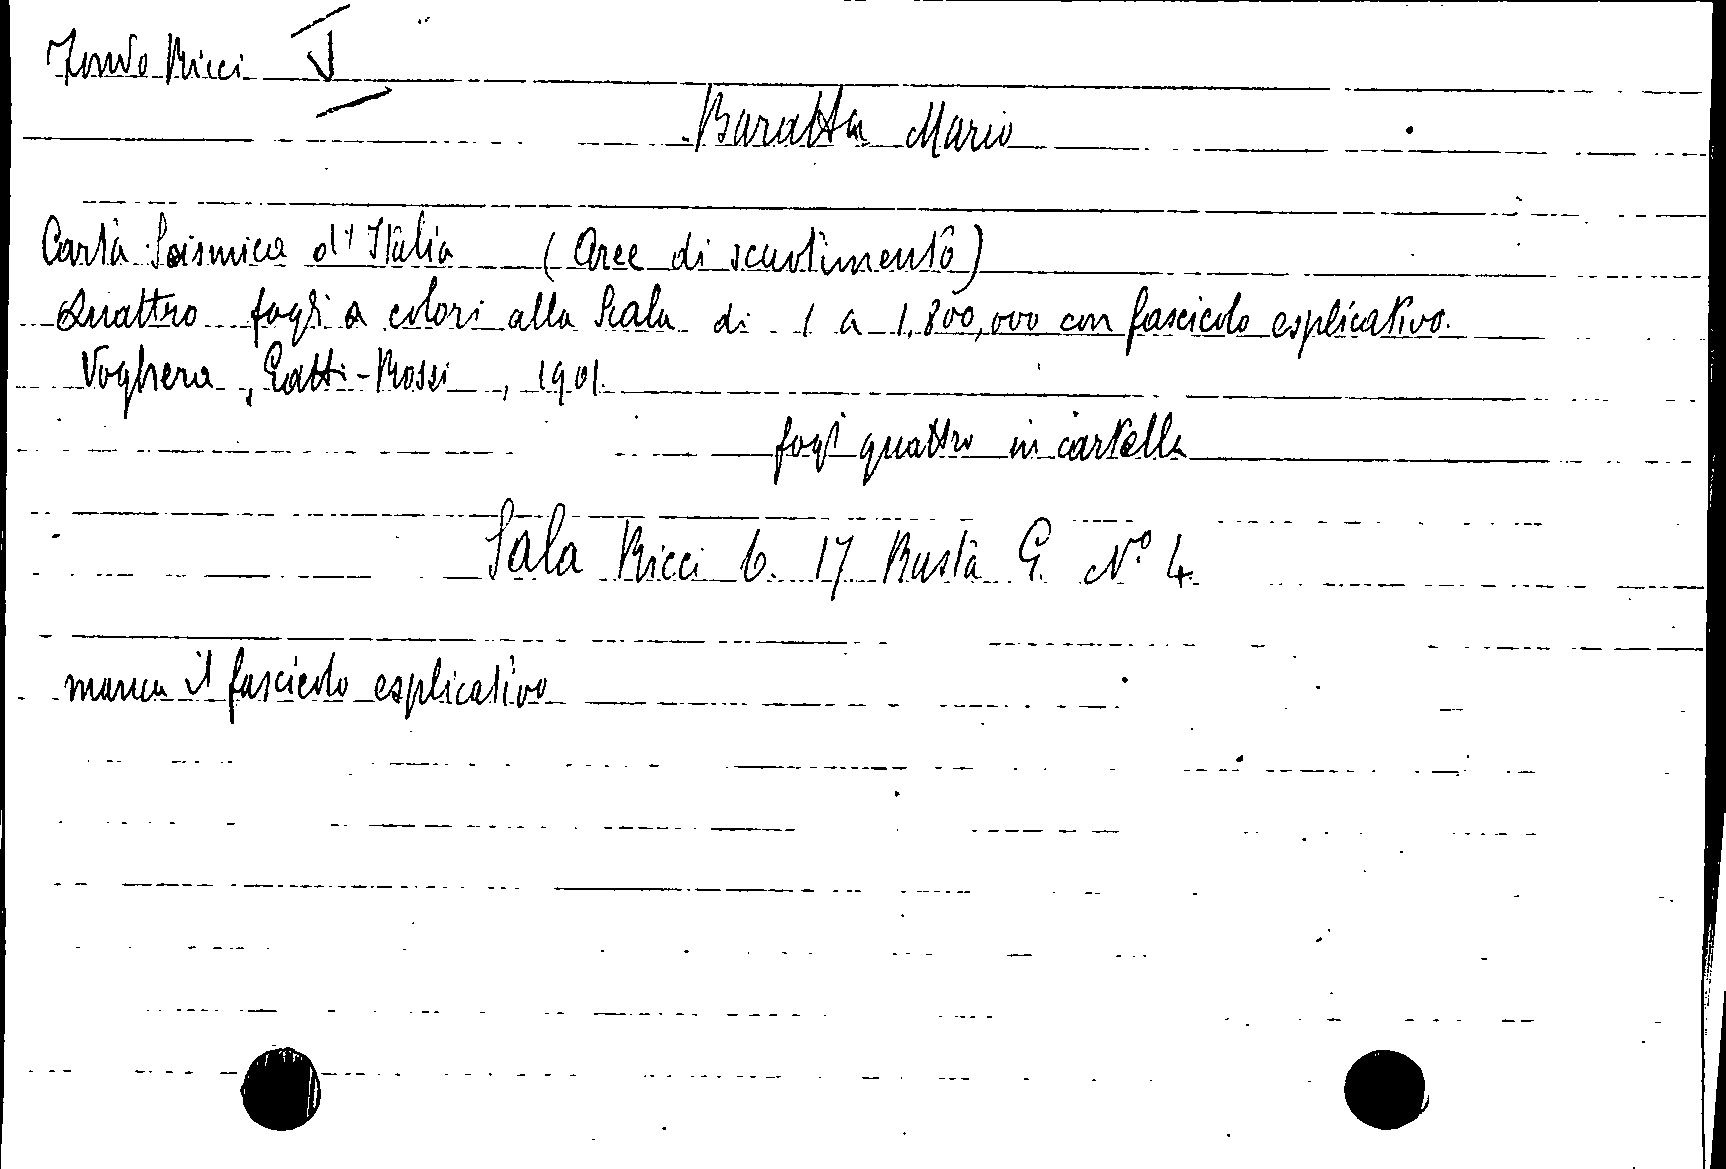 Fondo Ricci V
Baratta Mario
Carta Sismica d'Italia (Aree di scuotimento)
Quattro fogli a colori alla Scala di 1 a 1.800,000 con fascicolo esplicativo.
Voghera, Gatti-Rossi, 1901.
fogl quattro in cartella
Sala Ricci 6. 17 Busta G. N.º 4.
manca il fascicolo esplicativo